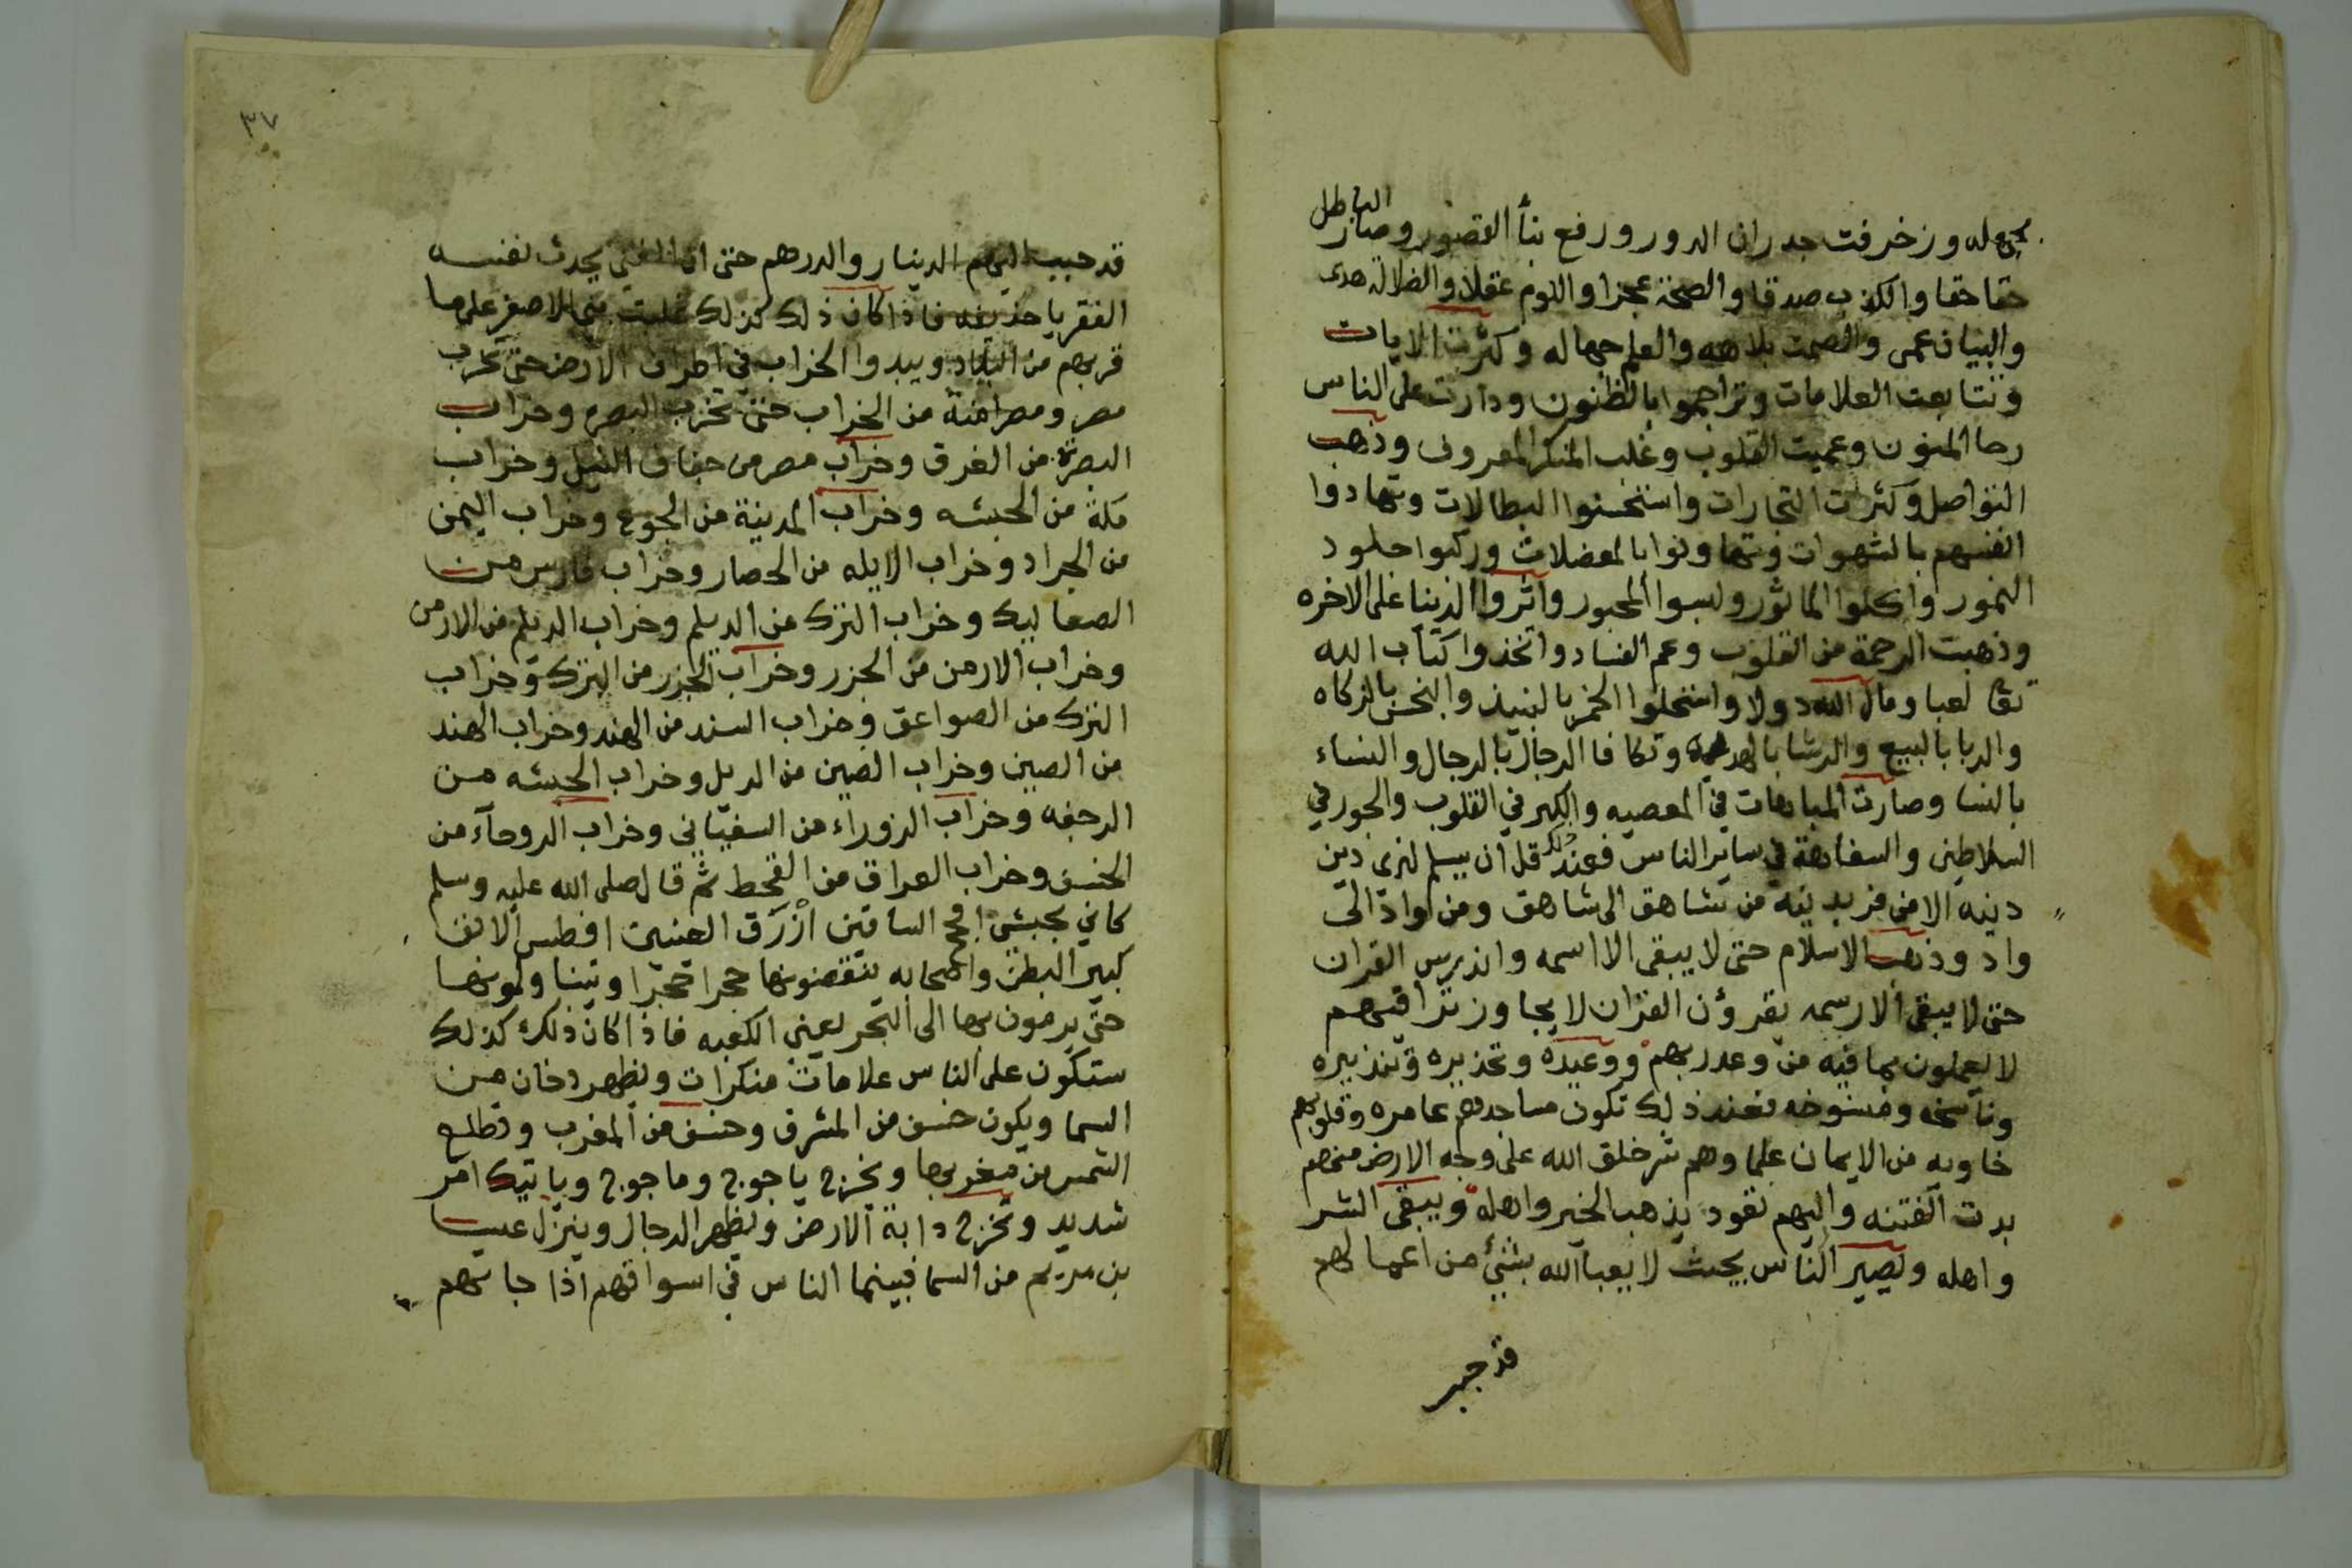 وزخرفت جدران الدور ورفع بنأ القصور وصار الباطل
حقا حقا والكذب صدقا والصحة عجزا واللوم عقلا والضلالة هدى
والبيان عمى والصمت بلاهه والعلم جهاله وكثرت الايات
وتتابعت العلامات وتراجموا بالظنون ودارت على الناس
رحا المنون وعميت القلوب وغلب المنكر المعروف وذهب
التواصل وكثرات التجارات واستحسنوا البطالات وتهادوا
انفسهم بالشهوات وتهاونوا بالمعضلات وركبوا جلود
النمور واكلوا الماثور ولبسوا المحبور واثروا الدنيا على الاخره
وذهبت الرحمة من القلوب وعم الفساد واتخذوا كتاب الله
لعبا ومال الله دولا واستحلوا الخمر بالنبيذ والنجس بالزكاه
والربا بالبيع والرشا وتكافا الرجال بالرجال والنساء
بالنسا وصارت المباهات في المعصيه والكبر في القلوب والجور في
السلاطين والسفاهة في ساير الناس فعند ذلك قل ان يسلم لذى دين
دينه الا من فر بدينه من شاهق الى شاهق ومن واد الى
واد وذهب الاسلام حتى لا يبقى الا اسمه واندرس القران
حتى لا يبقى الا رسمه يقرؤن القران لا يجاوز تراقيهم
لا يعملون بما فيه من وعد ربهم ووعيده وتحذيره وتنذيره
وناسخه ومنسوخه فعند ذلك تكون مساجدهم عامره وقلوبهم
خاويه من الايمان علما وهم شر خلق الله على وجه الارض منهم
بدت الفتنه واليهم تعود يذهب الخير واهله ويبقى الشر
واهله ويصير الناس بحيث لا يعبا الله بشئ من اعمالهم
قد حبب
٣٧
قد حبب اليهم الدينار والدرهم حتى ان الغنى يحدث نفسه
الفقر يا حذيفه فاذا كان ذلك كذلك على ما
قربهم من البلاد ويبدوا الخراب في اطراف الارض حتى تخرب
مصر ومصر امنة من الخراب حتى تخرب البصره وخراب
البصرة من الغرق وخراب مصر من جفاف النيل وخراب
مكة من الحبشه وخراب المدينة من الجوع وخراب اليمن
من الجراد وخراب الايله من الحصار وخراب فارس من
الصعاليك وخراب الترك من الديلم وخراب الديلم من الارمن
وخراب الارمن من الخزر وخراب الخزر من الترك وخراب
الترك من الصواعق وخراب السند من الهند وخراب الهند
من الصين وخراب الصين من الرمل وخراب الحبشه من
الرجفه وخراب الزوراء من السفياني وخراب الروحآء من
الخسف وخراب العراق من القحط ثم قال صلى الله عليه وسلم
كاني بحبشى افحج الساقين ازرق العينين افطس الانف
كبير البطن واصحابه ينقضونها حجرا حجرا ويتناولونها
حتى يرمون بها الى البحر يعنى الكعبه فاذا كان ذلك كذلك
ستكون على الناس علامات منكرات ويظهر دخان من
السما ويكون خسف من المشرق وخسف من المغرب وتطلع
الشمس من مغربها ويخرج ياجوج وماجوج وياتيك امر
شديد وتخرج دابة الارض ويظهر الدجال وينزل عيسا
بن مريم من السما فبينما الناس في اسواقهم اذا جاتهم